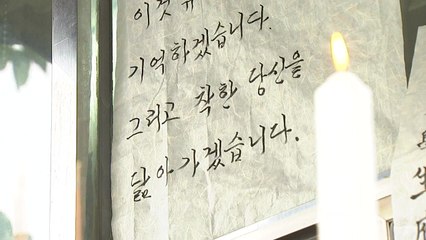 이것
기억하겠습니다.
그리고 착한 당신을
닮아가겠습니다.
生